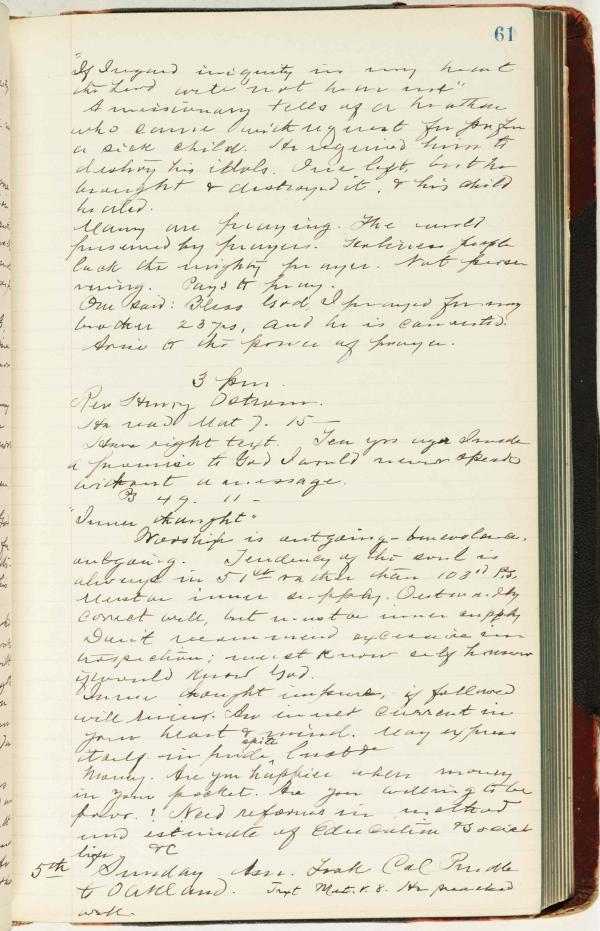 61
"If I regard iniquity in my heart
the Lord will not hear me"
A missionary tells of a heathen
who came with request for pr for
a sick child. He required him to
destroy his idols. One left, but he
brought & destroyed it, & his child
healed.
Many are praying. The world
preserved by prayers. Holiness people
lack the mighty prayer. Not perse
vering. Pays to pray.
One said: Bless God, I prayed for my
brother 23 yrs, and he is converted.
Arise to the power of prayer.
3 pm.
Rev Henry Ostrom.
He read Mat 7. 15 —
Have right text. Ten yrs ago I made
a promise to God I would never speak
without a message.
Ps 49. 11 —
"Inner thought"
Worship is outgoing - benevolence,
outgoing. Tendency of the soul is
always in 51st rather than 103rd Ps.
Must be inner supply. Outwardly
correct well, but must be inner supply
Don't recommend excessive in
trospection; must know self however
if would know God.
Inner thought impure, if followed
will ruin. An inner current in
your heart & mind. May express
itself in pride, spite, lust &
Money. Are you happier when money
in your pocket. Are you willing to be
poor? Need reforms in method
and estimate of Education & Societ
&c
5th Sunday Took Col
to Oakland. Text Mat. 5. 8. He preached
well.